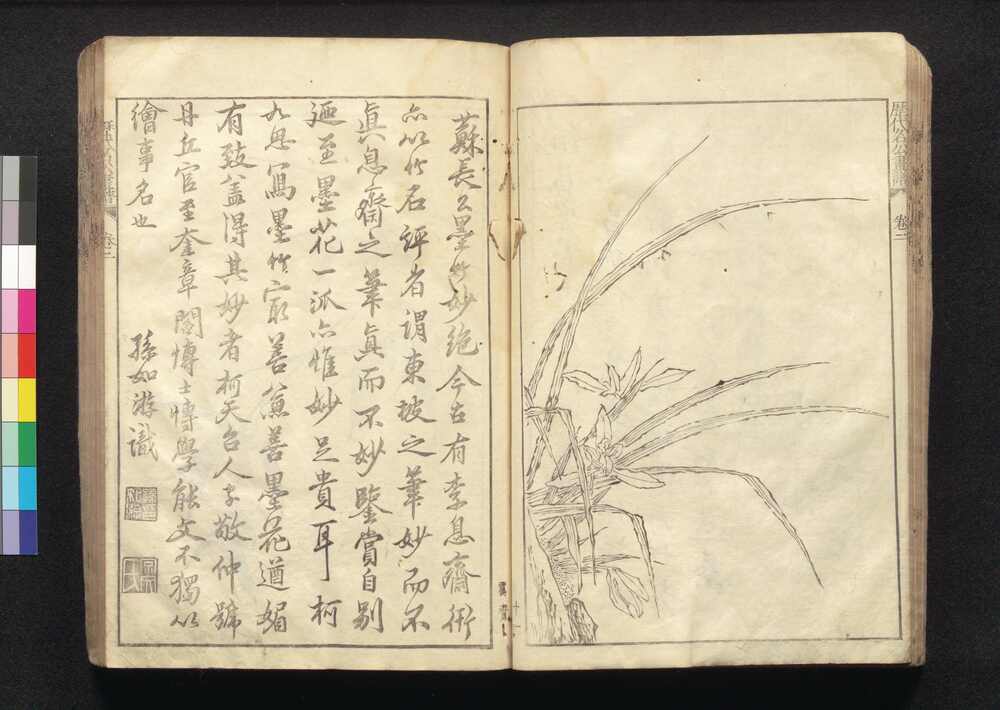 蘇長公墨竹妙絕今古有李息齋衎
亦以竹石評者謂東坡之筆妙而不
眞息齋之筆眞而不妙鑒賞自別
迺至墨花一派亦惟妙足貴耳柯
九思寫墨竹㝡善兼善墨花遒媚
有致盖得其妙者柯天台人字敬仲號
丹丘官至奎章閣博士博學能文不獨以
繪事名也
孫如游識
卷二